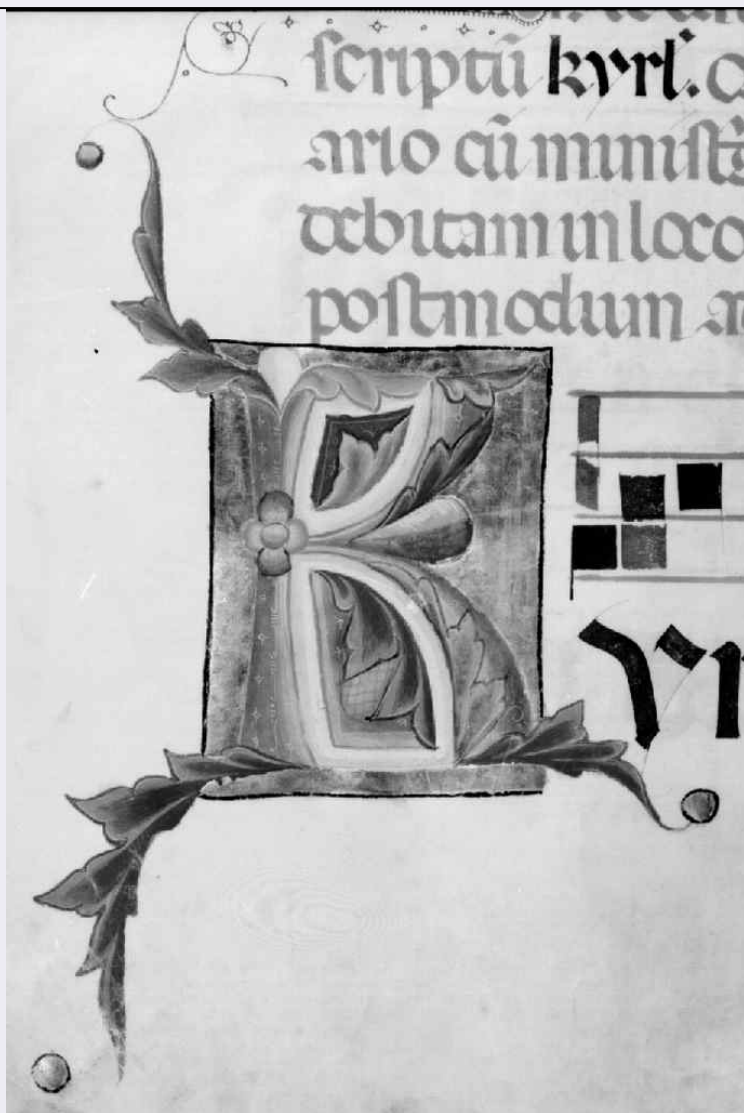 scriptū kyrľ. c
ario cū minist
debitam in loco
postmodum a
K yr